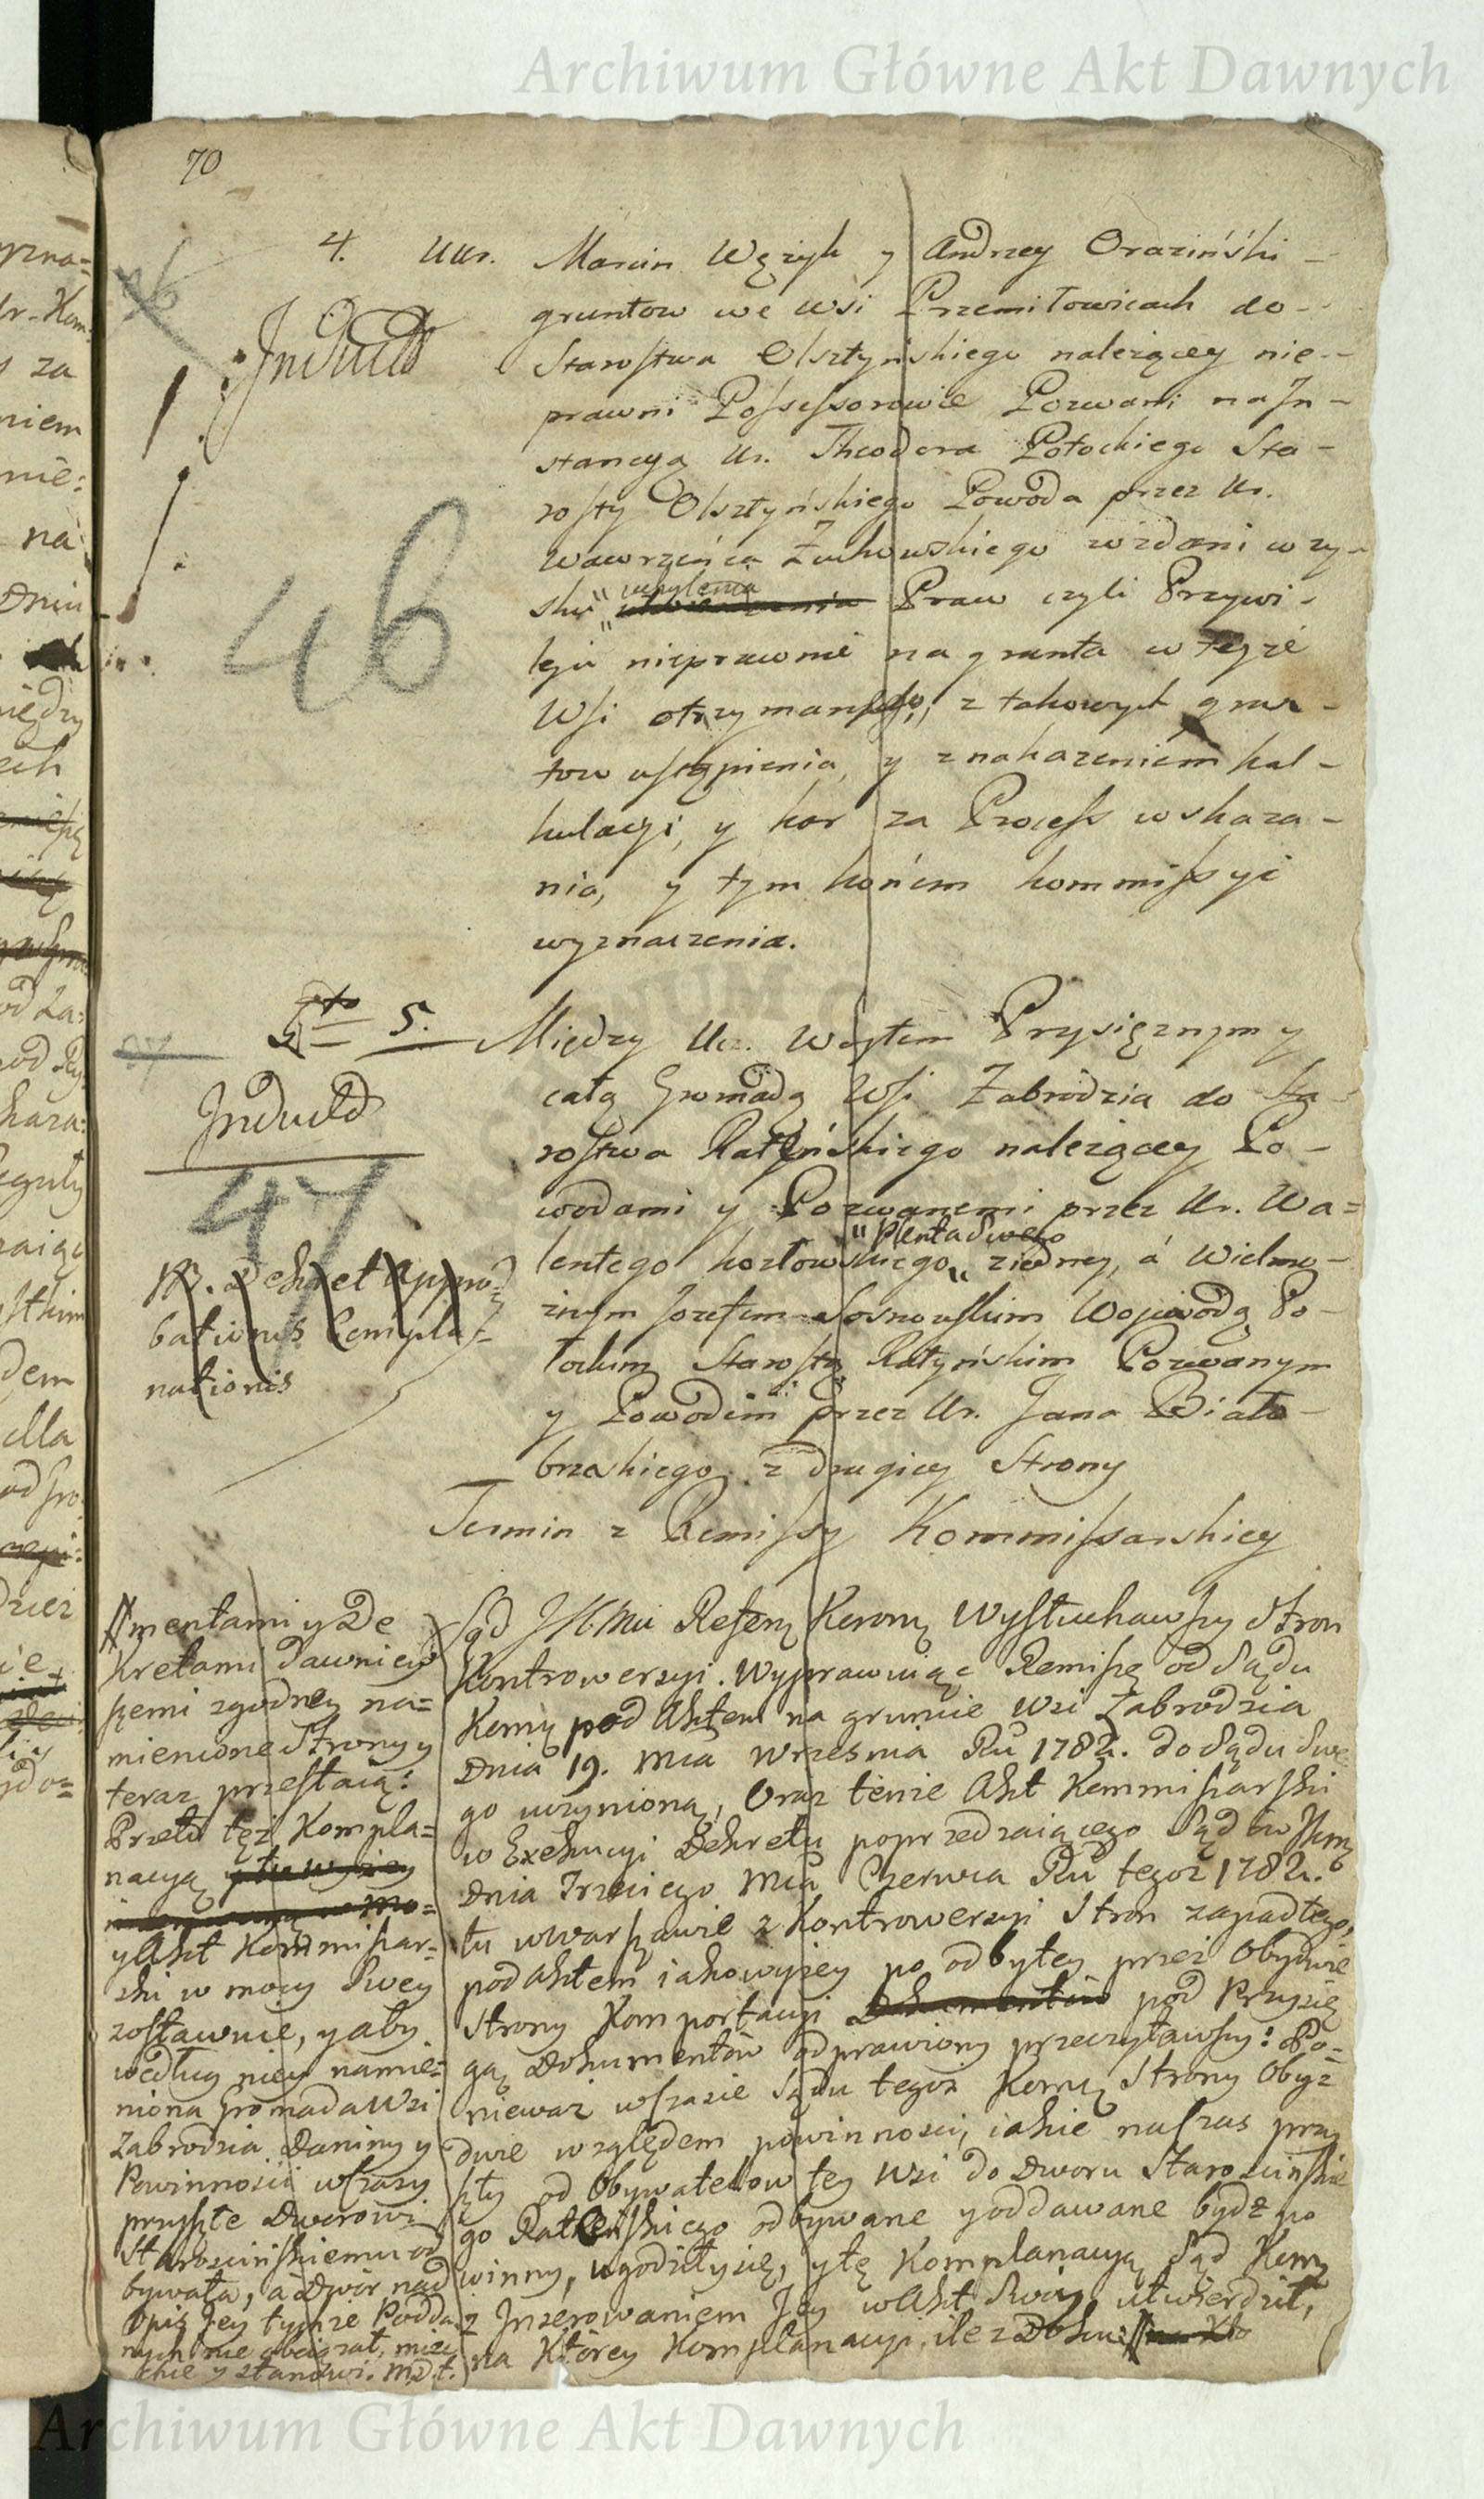 Archiwum Główne Akt Dawnych
70
4. Uur. Marcin Wężyk y Andrzey Oraziński
gruntow we wsi Przemiłowicach do-
Starostwa Olsztyńskiego należącey nie-
prawni Possessorowie Pozwani na In-
stancyą Ur. Theodora Potockiego Sta-
rosty Olsztyńskiego Powoda przez Ur.
Wawrzeńca Żuchowskiego wzdani w zy-
sku uchylenia Praw czyli Przywi-
leju nieprawnie na grunta w teyże
Wsi otrzymanego, z takowych grun-
tow ustąpienia, y z nakazeniem kal-
kulacyi, y kar za Process wskaza-
nia, y tym końcem kommissyi
wyznaczenia.
Induct
46
5. Między Ur. Woytem Prysięznym y
całą Gromadą Wsi Zabrodzia do Sta
rostwa Ratyńskiego należącey Po-
wodami y Pozwanemi przez Ur. Wa=
lentego Kozłowskiego Plenta Swego z iedney, á Wielmo-
żnym Jozefem Sosnowskim Woiewodą Po-
łockim Starostą Ratyńskim Pozwanym
y Powodem przez Ur. Jana Biało-
brzeskiego z drugiey Strony
Termin z Remissy Kommissarskiey
Induct
47
Dekret Appro=
bationis Compla=
nationis
Sąd JKMci Refery Korony Wysłuchawszy Stron
Kontrowersyi. Wyprawuiąc Remissę od Sądu
Komy pod Aktem na gruncie Wsi Zabrodzia
Dnia 19. Mca Wrzesnia Ru 1782. do Sądu Swe
go uczynioną, Oraz tenże Akt Kommissarski
w Exekucyi Dekretu poprzedzaiącego Sądow
Dnia Trzeciego Mca Czerwca Ru tegoż 1782.
tu w Warszawie z Kontrowersyi Stron zapadłego,
pod Aktem iakowyżey po odbytey przez Obydwie
Strony Komportacyi pod Przysię
gą Dokumentów odprawiony przeczytawszy: Po=
nieważ w czasie Sądu tegoż Komy Strony Oby=
dwie względem powinnosci, iakie na czas przy
szły od Obywatelow tey Wsi do Dworu Starościńskie
go odbywane y oddawane bydź po
winny, ugodziły się, y tę Komplanacyą Sąd Komy
z Inzerowaniem Jey w Akt Swóy utwierdził,
na Którey Komplanacyi, ile z Doku=
mentami y De
kretami dawniey
szemi zgodney na=
mienione Strony y
teraz przestaią:
Przeto też Kompla=
nacyą
y Akt Kommissar=
ski w mocy Swey
zostawuie, y aby
według niey namie=
niona Gromada Wsi
Zabrodzia Daniny y
Powinności w czasy
przyszłe Dworowi
Starościńskiemu od
bywała, a Dwór nad
Opis Jey tychże Podda
nych nie obciążał, mieć
chce y stanowi. M. D. t.
Archiwum Główne Akt Dawnych